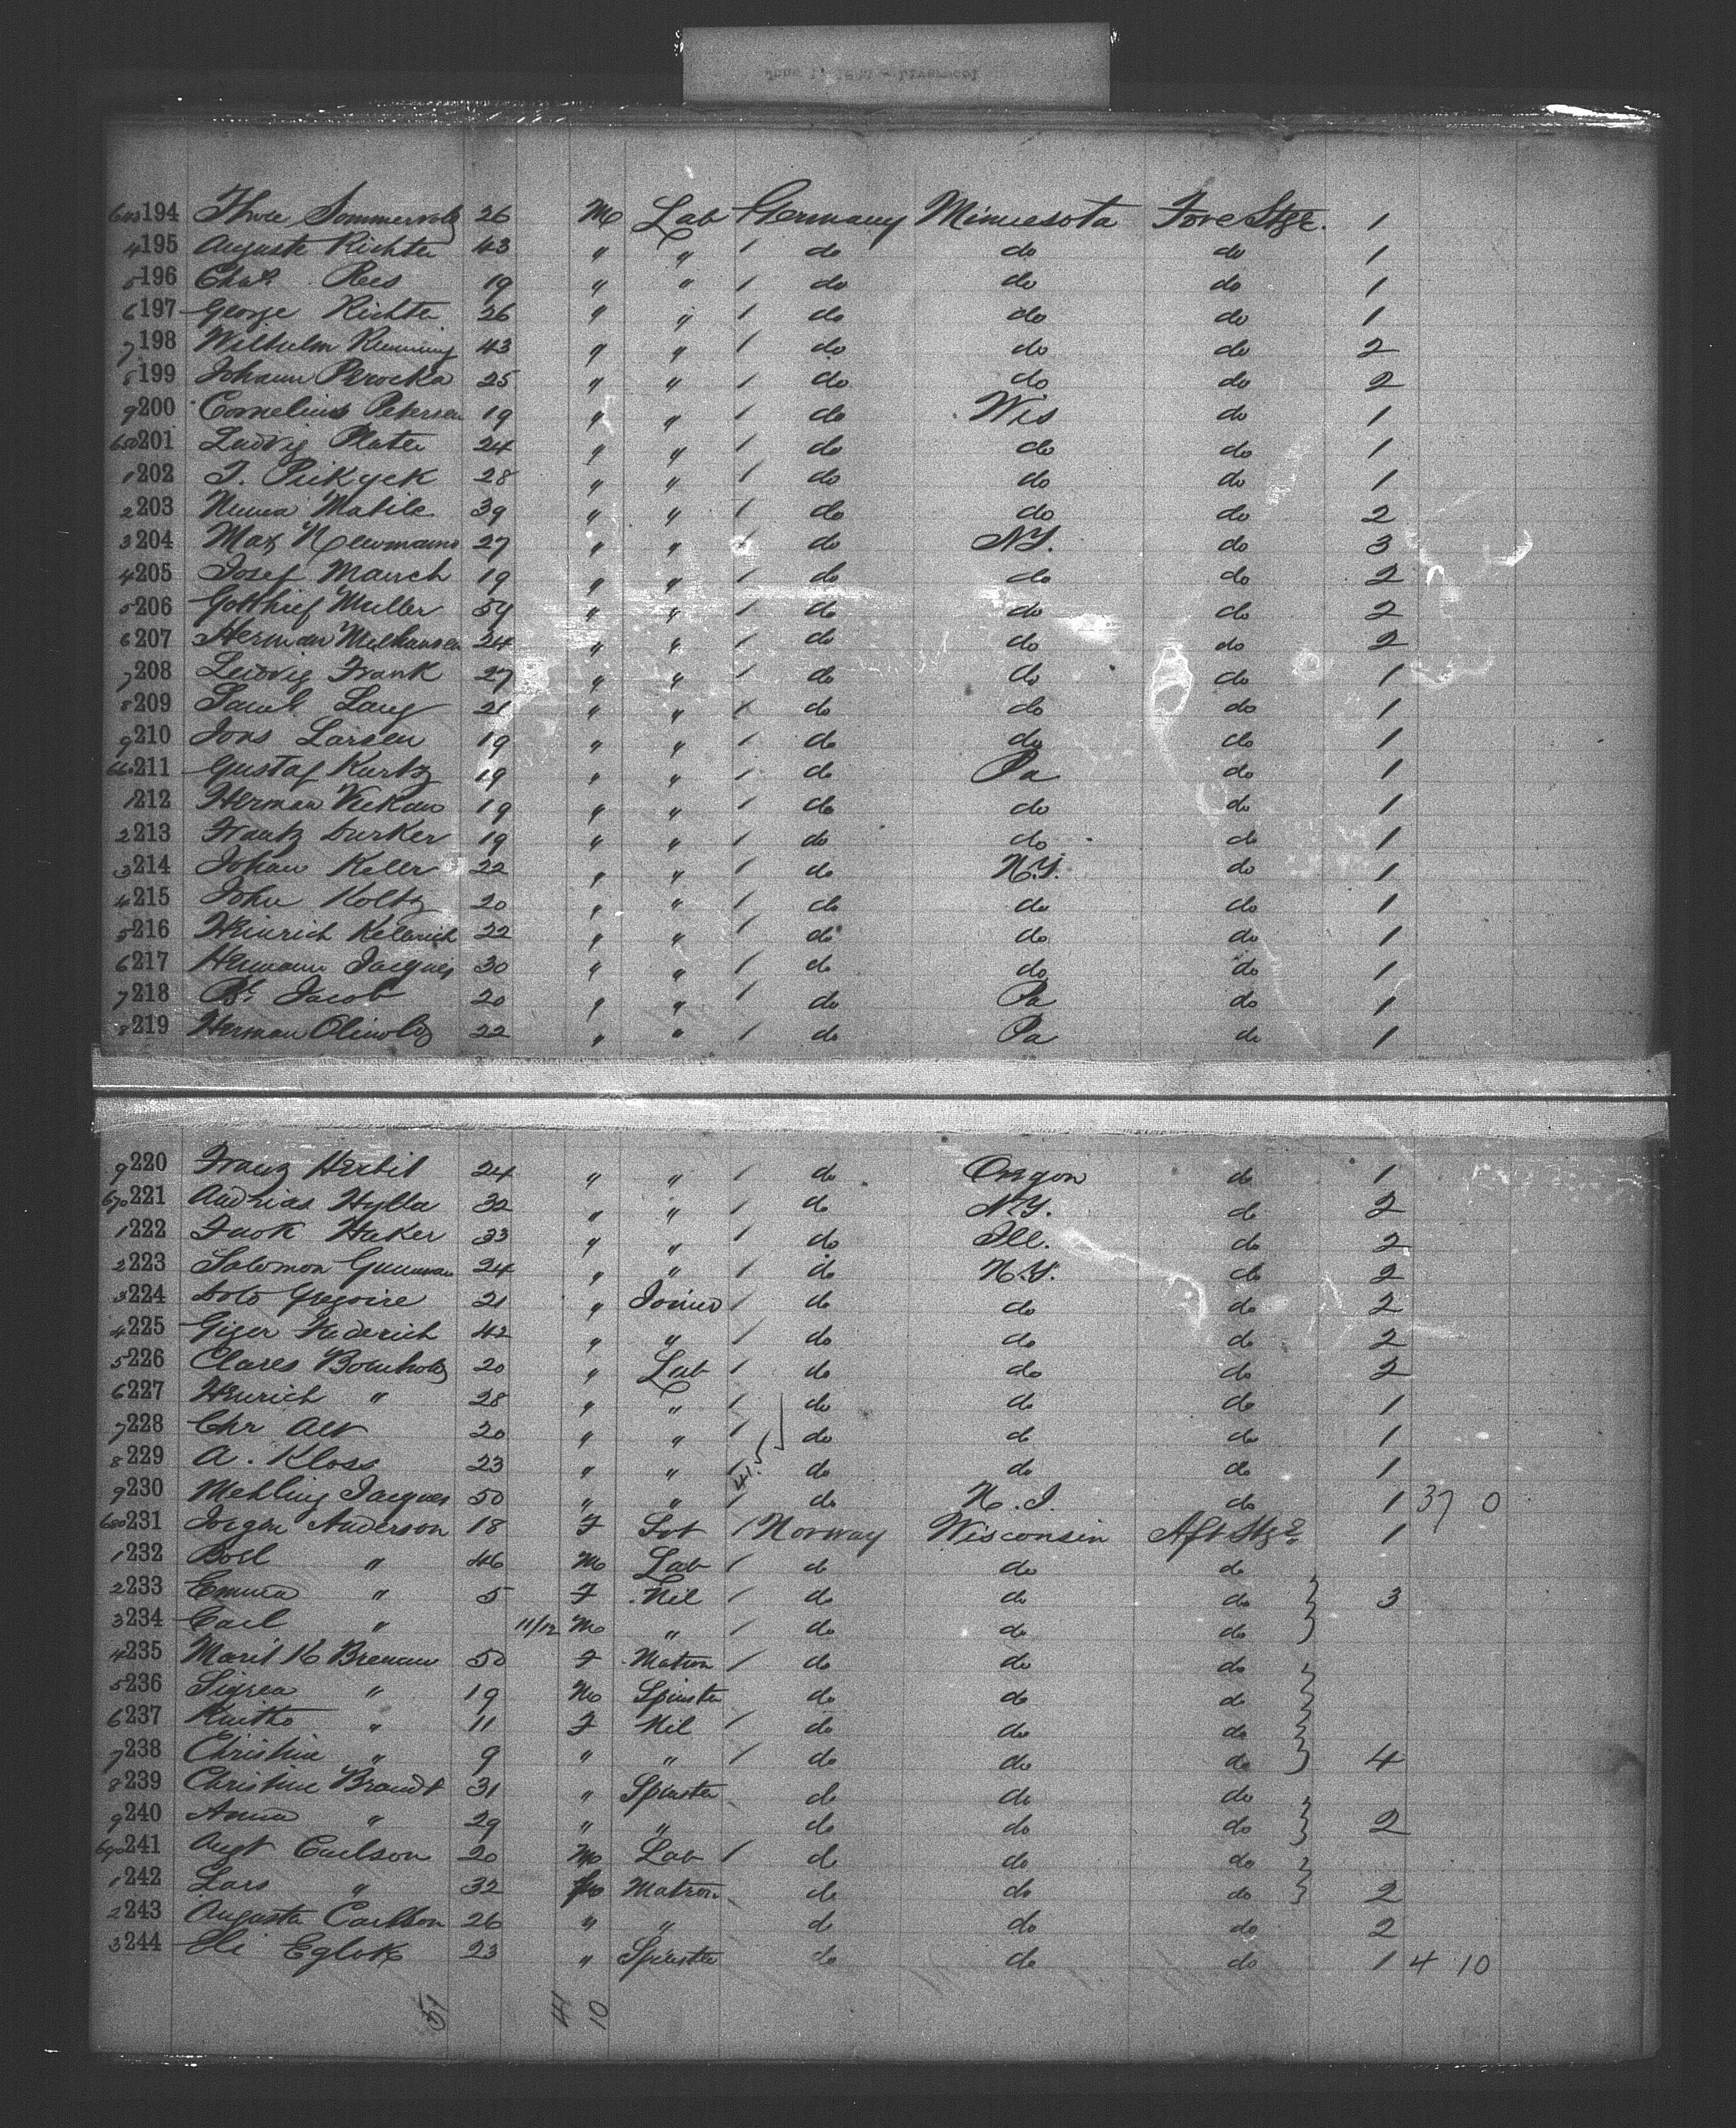 194 Sommervold 26 M Lab Germany Minnesota Fore Stge. 1
4 195 Auguste Richter 43 " " / do do do 1
5 196 Chas. Rees 19 " " / do do do 1
6 197 George Richter 26 " " / do do do 1
7 198 Wilhelm 43 " " / do do do 2
8 199 Johann Perocka 25 " " / do do do 2
9 200 Cornelius Petersen 19 " " / do Wis do 1
650 201 Ludvig Plater 24 " " / do do do 1
1 202 28 " " / do do do 1
2 203 Matile 39 " " / do do do 2
3 204 Max Newmann 27 " " / do NY. do 3
4 205 Josef March 19 " " / do do do 2
5 206 Gotthief Muller 54 " " / do do do 2
6 207 Herman Melhausen 24 " " / do do do 2
7 208 Ludvig Frank 27 " " / do do do 1
8 209 Saml. Lang 21 " " / do do do 1
9 210 Jons Larsen 19 " " / do do do 1
660 211 Gustaf Kurtz 19 " " / do Pa do 1
1 212 Herman 19 " " / do do do 1
2 213 Frantz Durker 19 " " / do do do 1
3 214 Johan Keller 22 " " / do N.Y. do 1
4 215 John Koltz 20 " " / do do do 1
5 216 Heinrich Kelbrich 22 " " / do do do 1
6 217 Hermann Jacques 30 " " / do do do 1
7 218 Jacob 20 " " / do Pa do 1
8 219 Herman 22 " " / do Pa do 1
9 220 Franz Herbil 24 " " / do Oregon do 1
670 221 Andrias Hylla 32 " " / do NY. do 2
1 222 Haker 33 " " / do Ill. do 2
2 223 Salomon 24 " " / do N.Y. do 2
3 224 Gregoire 21 " Joiner / do do do 2
4 225 Giger Frederich 42 " " / do do do 2
5 226 Clares Bournholz 20 " Lab / do do do 2
6 227 Henrich " 28 " " / do do do 1
7 228 Chr Alt 20 " " / do do do 1
8 229 A. Kloss 23 " " / do do do 1
41.5
9 230 Mehling Jacques 50 " " / do N.J. do 1 37 0
680 231 Jorgen Anderson 18 F / Norway Wisconsin Aft Stge 1
1 232 Boel " 46 M Lab / do do do
2 233 Emma " 5 F Nil / do do do 3
3 234 Carl " 11/12 M " / do do do
4 235 Marit K Brenan 50 F Matron / do do do
5 236 Sigrea " 19 M Spinster do do do
6 237 " 11 F Nil / do do do
7 238 Christine " 9 " " / do do do 4
8 239 Christine Brandt 31 " Spinster do do do
9 240 Anna " 29 " " do do do 2
690 241 Augt Carlson 20 M Lab / do do do
1 242 Lars " 32 Matron do do do 2
2 243 Augusta Carlson 26 " " do do do 2
3 244 Eli 23 " Spinster do do do 1 4 10
51 41 10